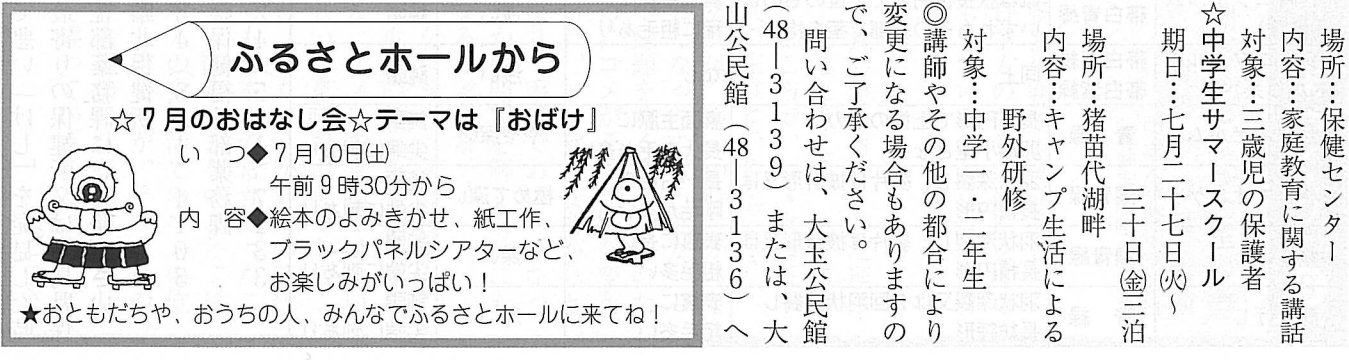 場所…保健センター
内容…家庭教育に関する講話
対象…三歳児の保護者
☆中学生サマースクール
期日…七月二十七日㈫～
三十日㈮三泊
場所…猪苗代湖畔
内容…キャンプ生活による
野外研修
対象…中学一・二年生
◎講師やその他の都合により
変更になる場合もありますの
で、ご了承ください。
問い合わせは、大玉公民館
(48―3139)または、大
山公民館(48―3136)へ
ふるさとホールから
☆7月のおはなし会☆テーマは『おばけ』
いつ◆7月10日㈯
午前9時30分から
内容◆絵本のよみきかせ、紙工作、
ブラックパネルシアターなど、
お楽しみがいっぱい!
★おともだちや、おうちの人、みんなでふるさとホールに来てね!